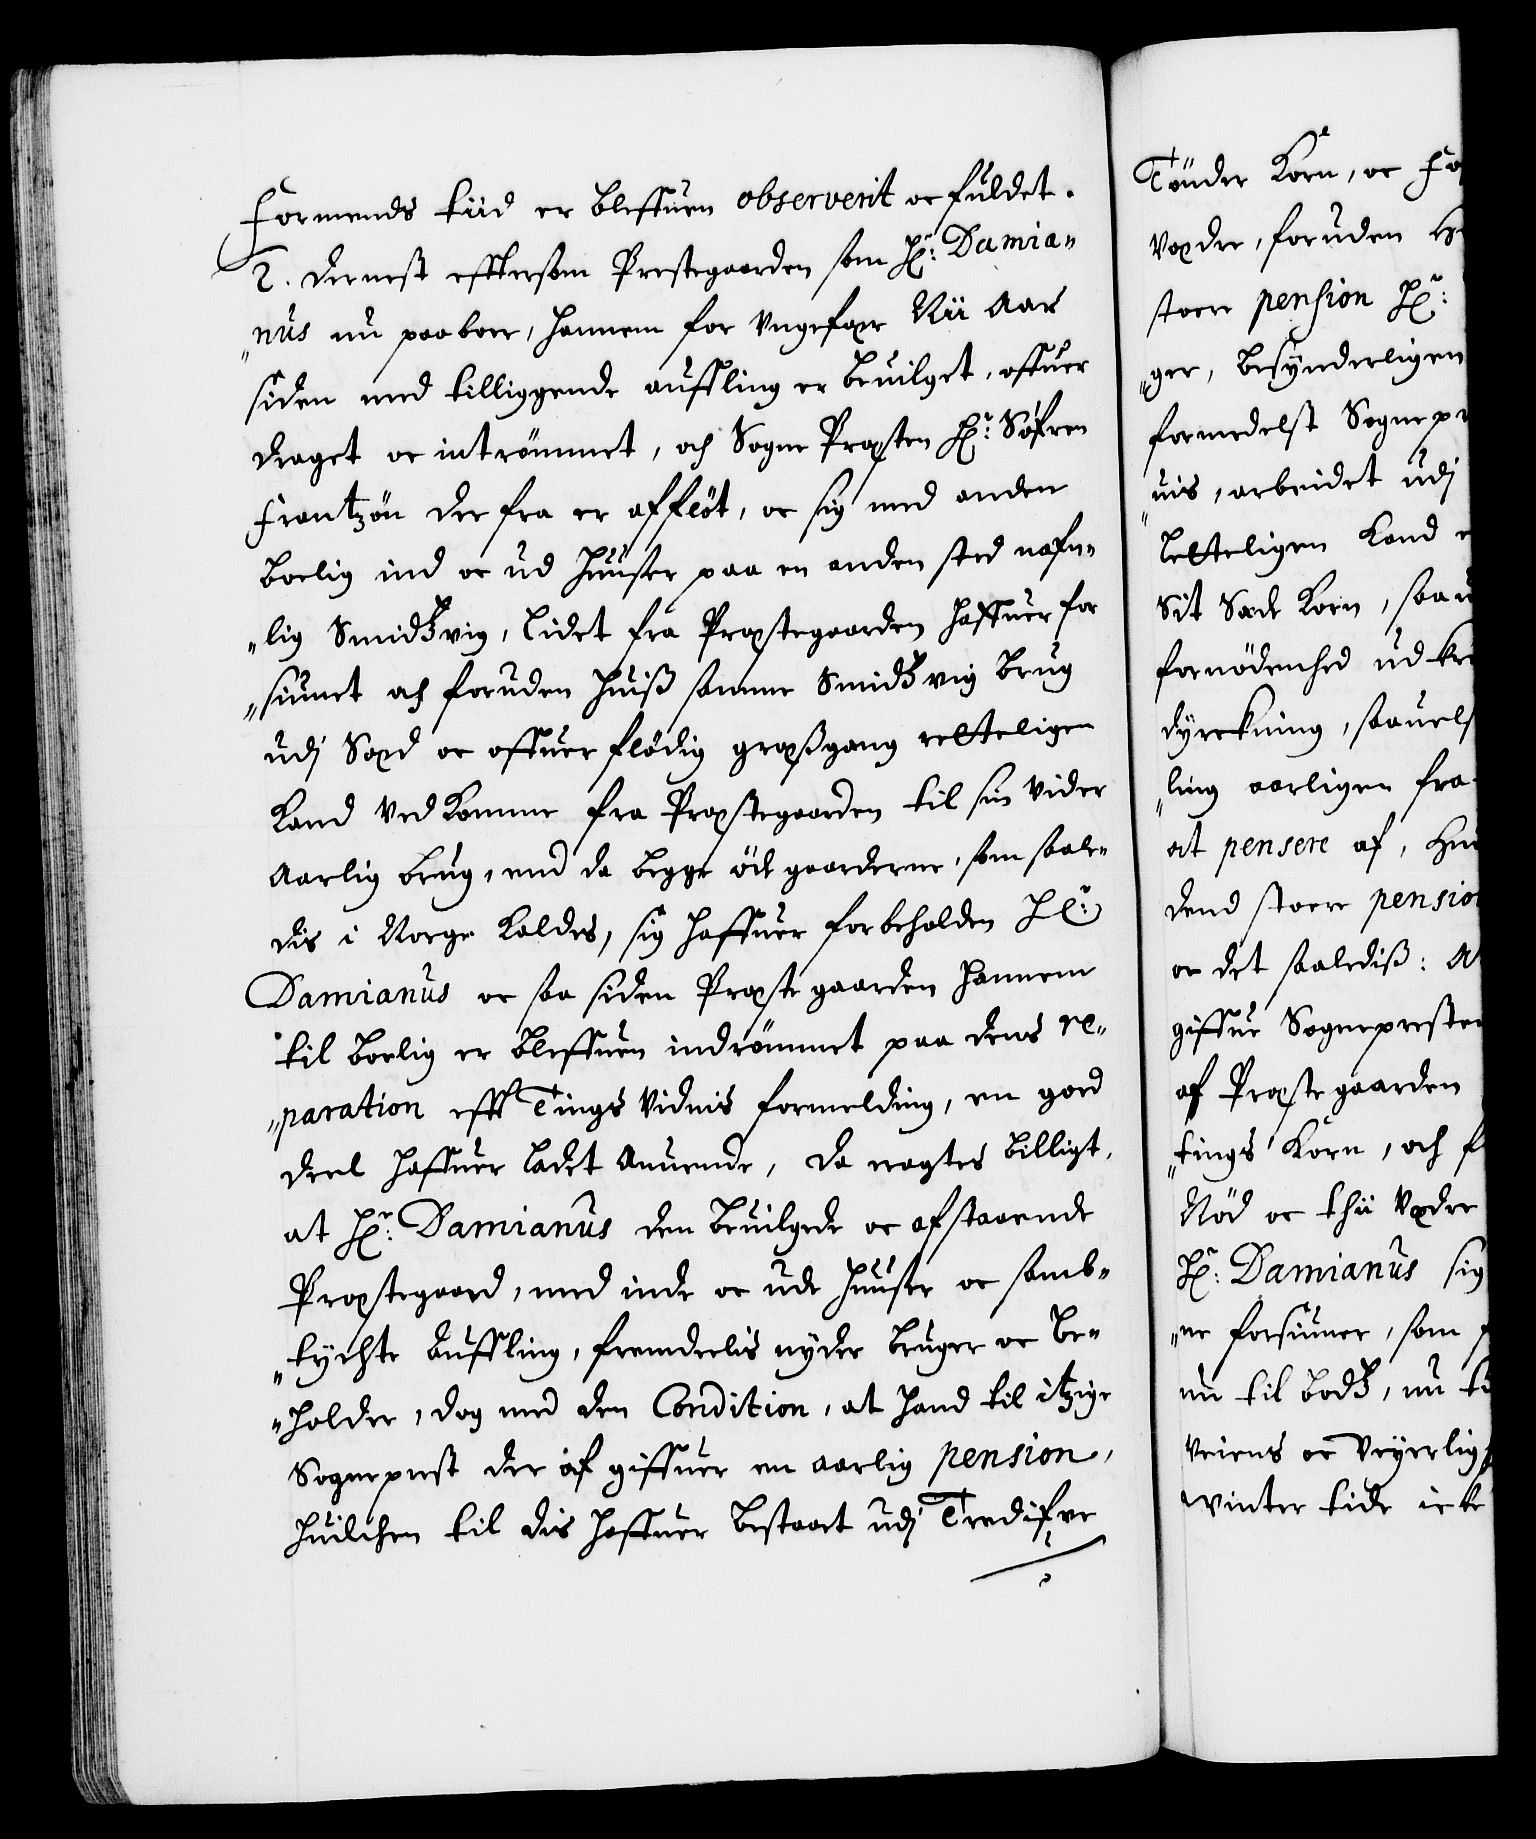 Formends tiid er bleffuen observerit oc fuldet.
2. Dernest efftersom Prestegaarden som Hr: Damia-
"nus nu paaboer, hannem for ungefær Nii Aar
siden med tilliggende auffling er beuilget, offuer
draget oc intrömmet, och Sogne Præsten Hr: Söfren
Frantzön der fra er afflöt, oc sig med anden
boelig ind oc ud Huuser paa en anden sted nafn-
"lig Smidtzvig, lidet fra Præstegaarden haffuer for
"siunet och foruden huiß samme Smidtzvig brug
udj Sæd oc offuerflödig græßgang retteligen
Kand ved Komme fra Præstegaarden til sin vider
Aarlig brug, end da begge öde gaarderne, som saale-
dis i Norge Kaldes, sig haffuer forbeholden Hr:
Damianus oc saa siden Præstegaarden hannem
til boelig er bleffuen indrömmet paa dens re-
"paration efft Tings Vidnis formelding, en goed
deel haffuer ladet Anuende, da eragtes billigt,
at Hr: Damianus den beuilgede oc afstaaende
Præstegaard, med inde oc ude Huuse oc samb-
"tychte Auffling, fremdeelis nyder bruger oc be-
"holder, dog med den Condition, at hand til itzige
Sognepræst der af giffuer en aarlig pension,
huilchen til dis haffuer bestaaet udj Tredifve
Tönder Korn, oc
Voxder, foruden
stoere pension Hr:
"ger, besynderligen
formedelst Sognepr
"nis, arbeidet udj
letteligen Kand
Sit Sæde Korn,
fornödenhed ud
dyrckning, saauels
"ling aarligen fra
at pensere af,
dend stoere pension
oc det saalediß:
giffue Sognepresten
af Præstegaarden
"tings Korn, och
Nöd oc thii Voxder
Hr: Damianus sig
"ne forsiuner, som
nu til bodtz, nu
Veiens oc Veyerlig
winter tide icke